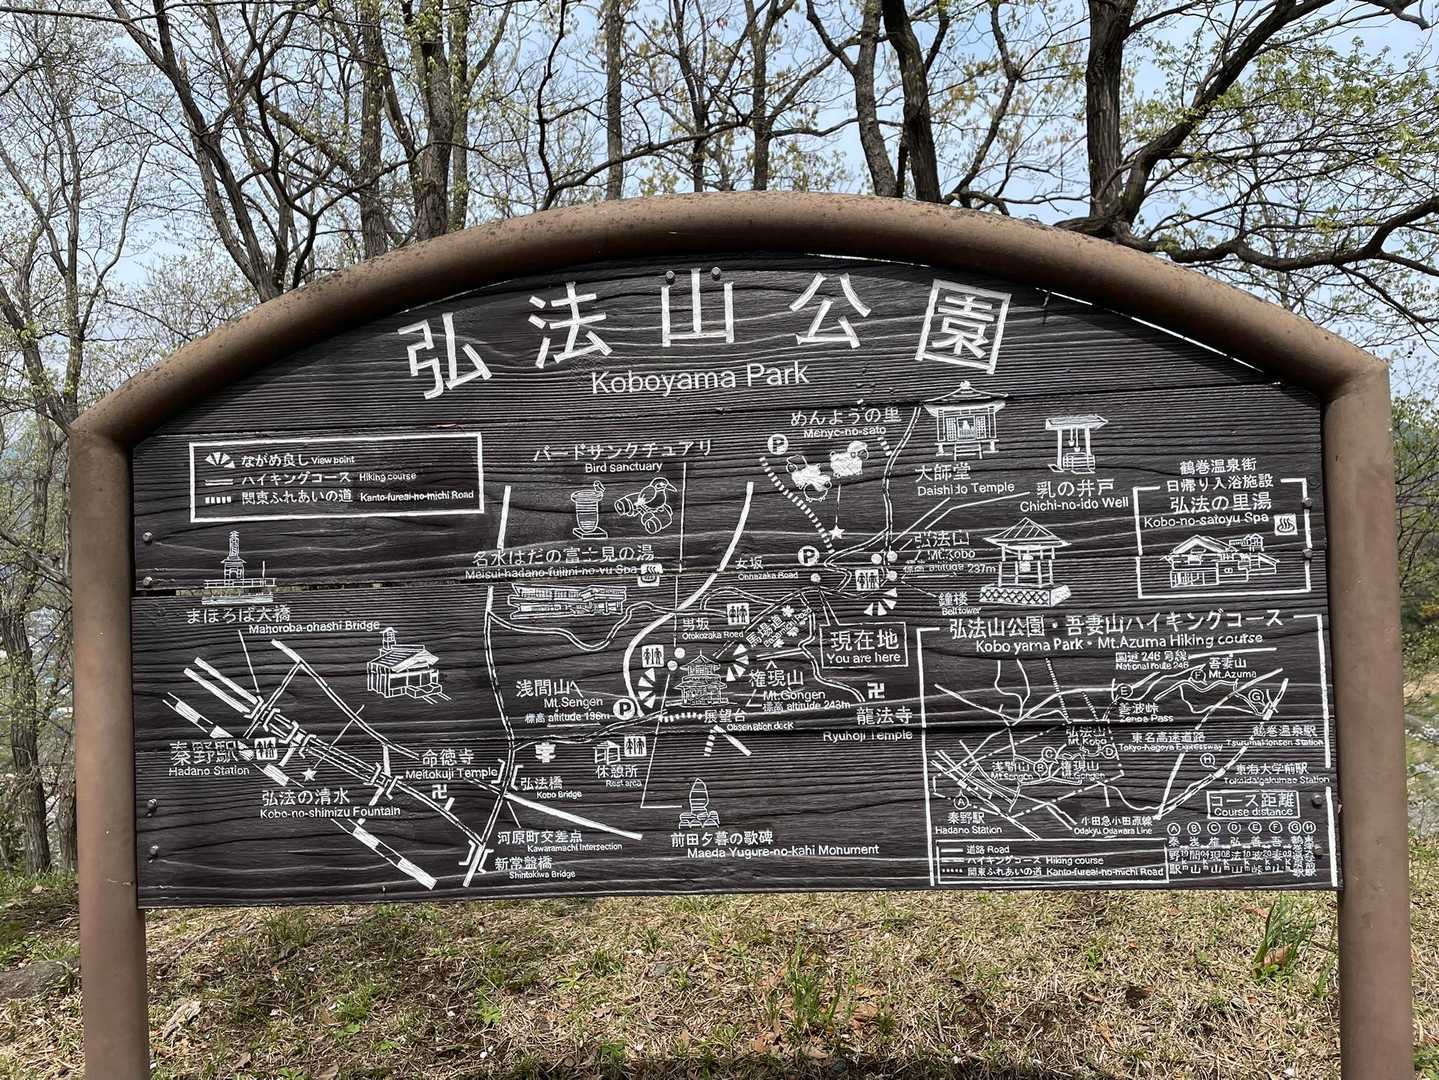 弘法山公園
Koboyama Park
ながめ良し View point
ハイキングコース Hiking course
関東ふれあいの道 Kanto-fureai-no-michi Road
バードサンクチュアリ
Bird sanctuary
めんようの里
Menyo-no-sato
大師堂
Daishi-do Temple
乳の井戸
Chichi-no-ido Well
鶴巻温泉街
日帰り入浴施設
弘法の里湯
Kobo-no-satoyu Spa
名水はだの富士見の湯
Meisui-hadano-fujimi-no-yu Spa
女坂
Onnazaka Road
弘法山
Mt.Kobo
標高 altitude 237m
鐘楼
Bell tower
まほろば大橋
Mahoroba-ohashi Bridge
男坂
Otokozaka Road
馬場道
現在地
You are here
浅間山へ
Mt.Sengen
標高 altitude 196m
権現山
Mt.Gongen
標高 altitude 243m
展望台
Observation deck
龍法寺
Ryuhoji Temple
秦野駅
Hadano Station
命徳寺
Meitokuji Temple
休憩所
Rest area
弘法の清水
Kobo-no-shimizu Fountain
弘法橋
Kobo Bridge
河原町交差点
Kawaramachi Intersection
新常盤橋
Shintokiwa Bridge
前田夕暮の歌碑
Maeda Yugure-no-kahi Monument
P
P
P
弘法山公園・吾妻山ハイキングコース
Koboyama Park・Mt.Azuma Hiking course
国道 246号線
National route 246
吾妻山
Mt.Azuma
善波峠
Zenpa Pass
弘法山
Mt.Kobo
東名高速道路
Tokyo-Nagoya Expressway
鶴巻温泉駅
Tsurumakionsen Station
浅間山
Mt.Sengen
権現山
Mt.Gongen
東海大学前駅
Tokaidaigakumae Station
秦野駅
Hadano Station
小田急小田原線
Odakyu Odawara Line
コース距離
Course distance
A B C D E F G H
道路 Road
ハイキングコース Hiking course
関東ふれあいの道 Kanto-fureai-no-michi Road